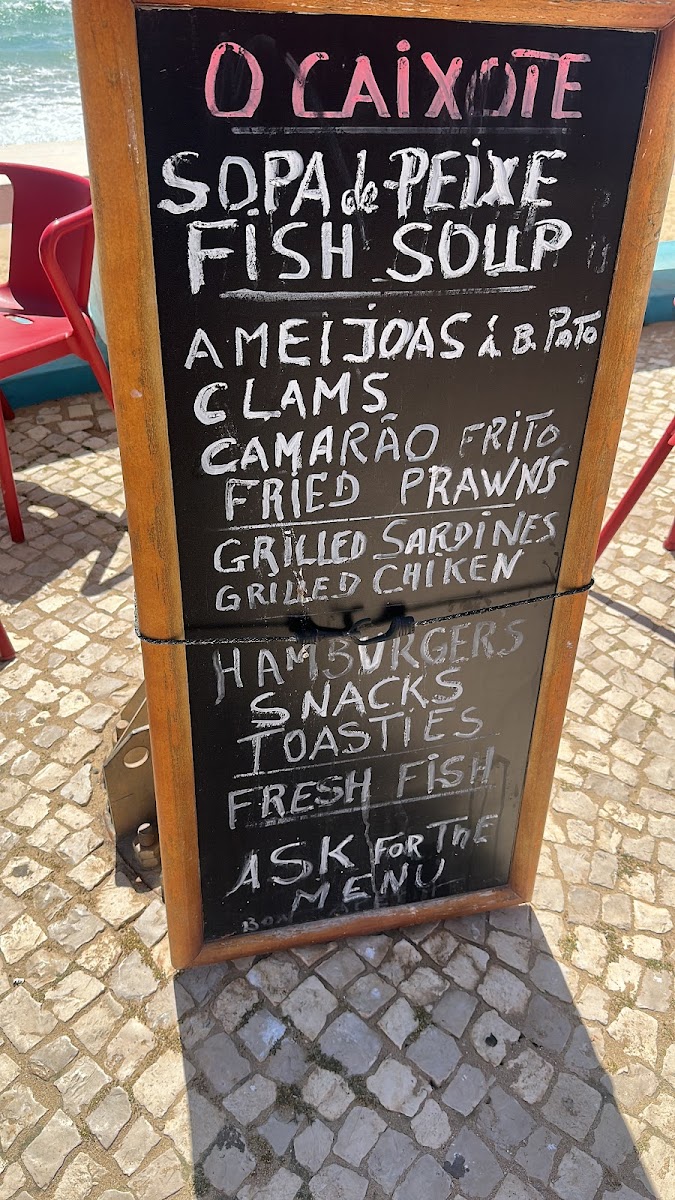 O CAIXOTE
SOPA de PEIXE
FISH SOUP
AMEIJOAS á B. PatO
CLAMS
CAMARÃO FRITO
FRIED PRAWNS
GRILLED SARDINES
GRILLED CHIKEN
HAMBURGERS
SNACKS
TOASTIES
FRESH FISH
ASK FOR THE
MENU
BON